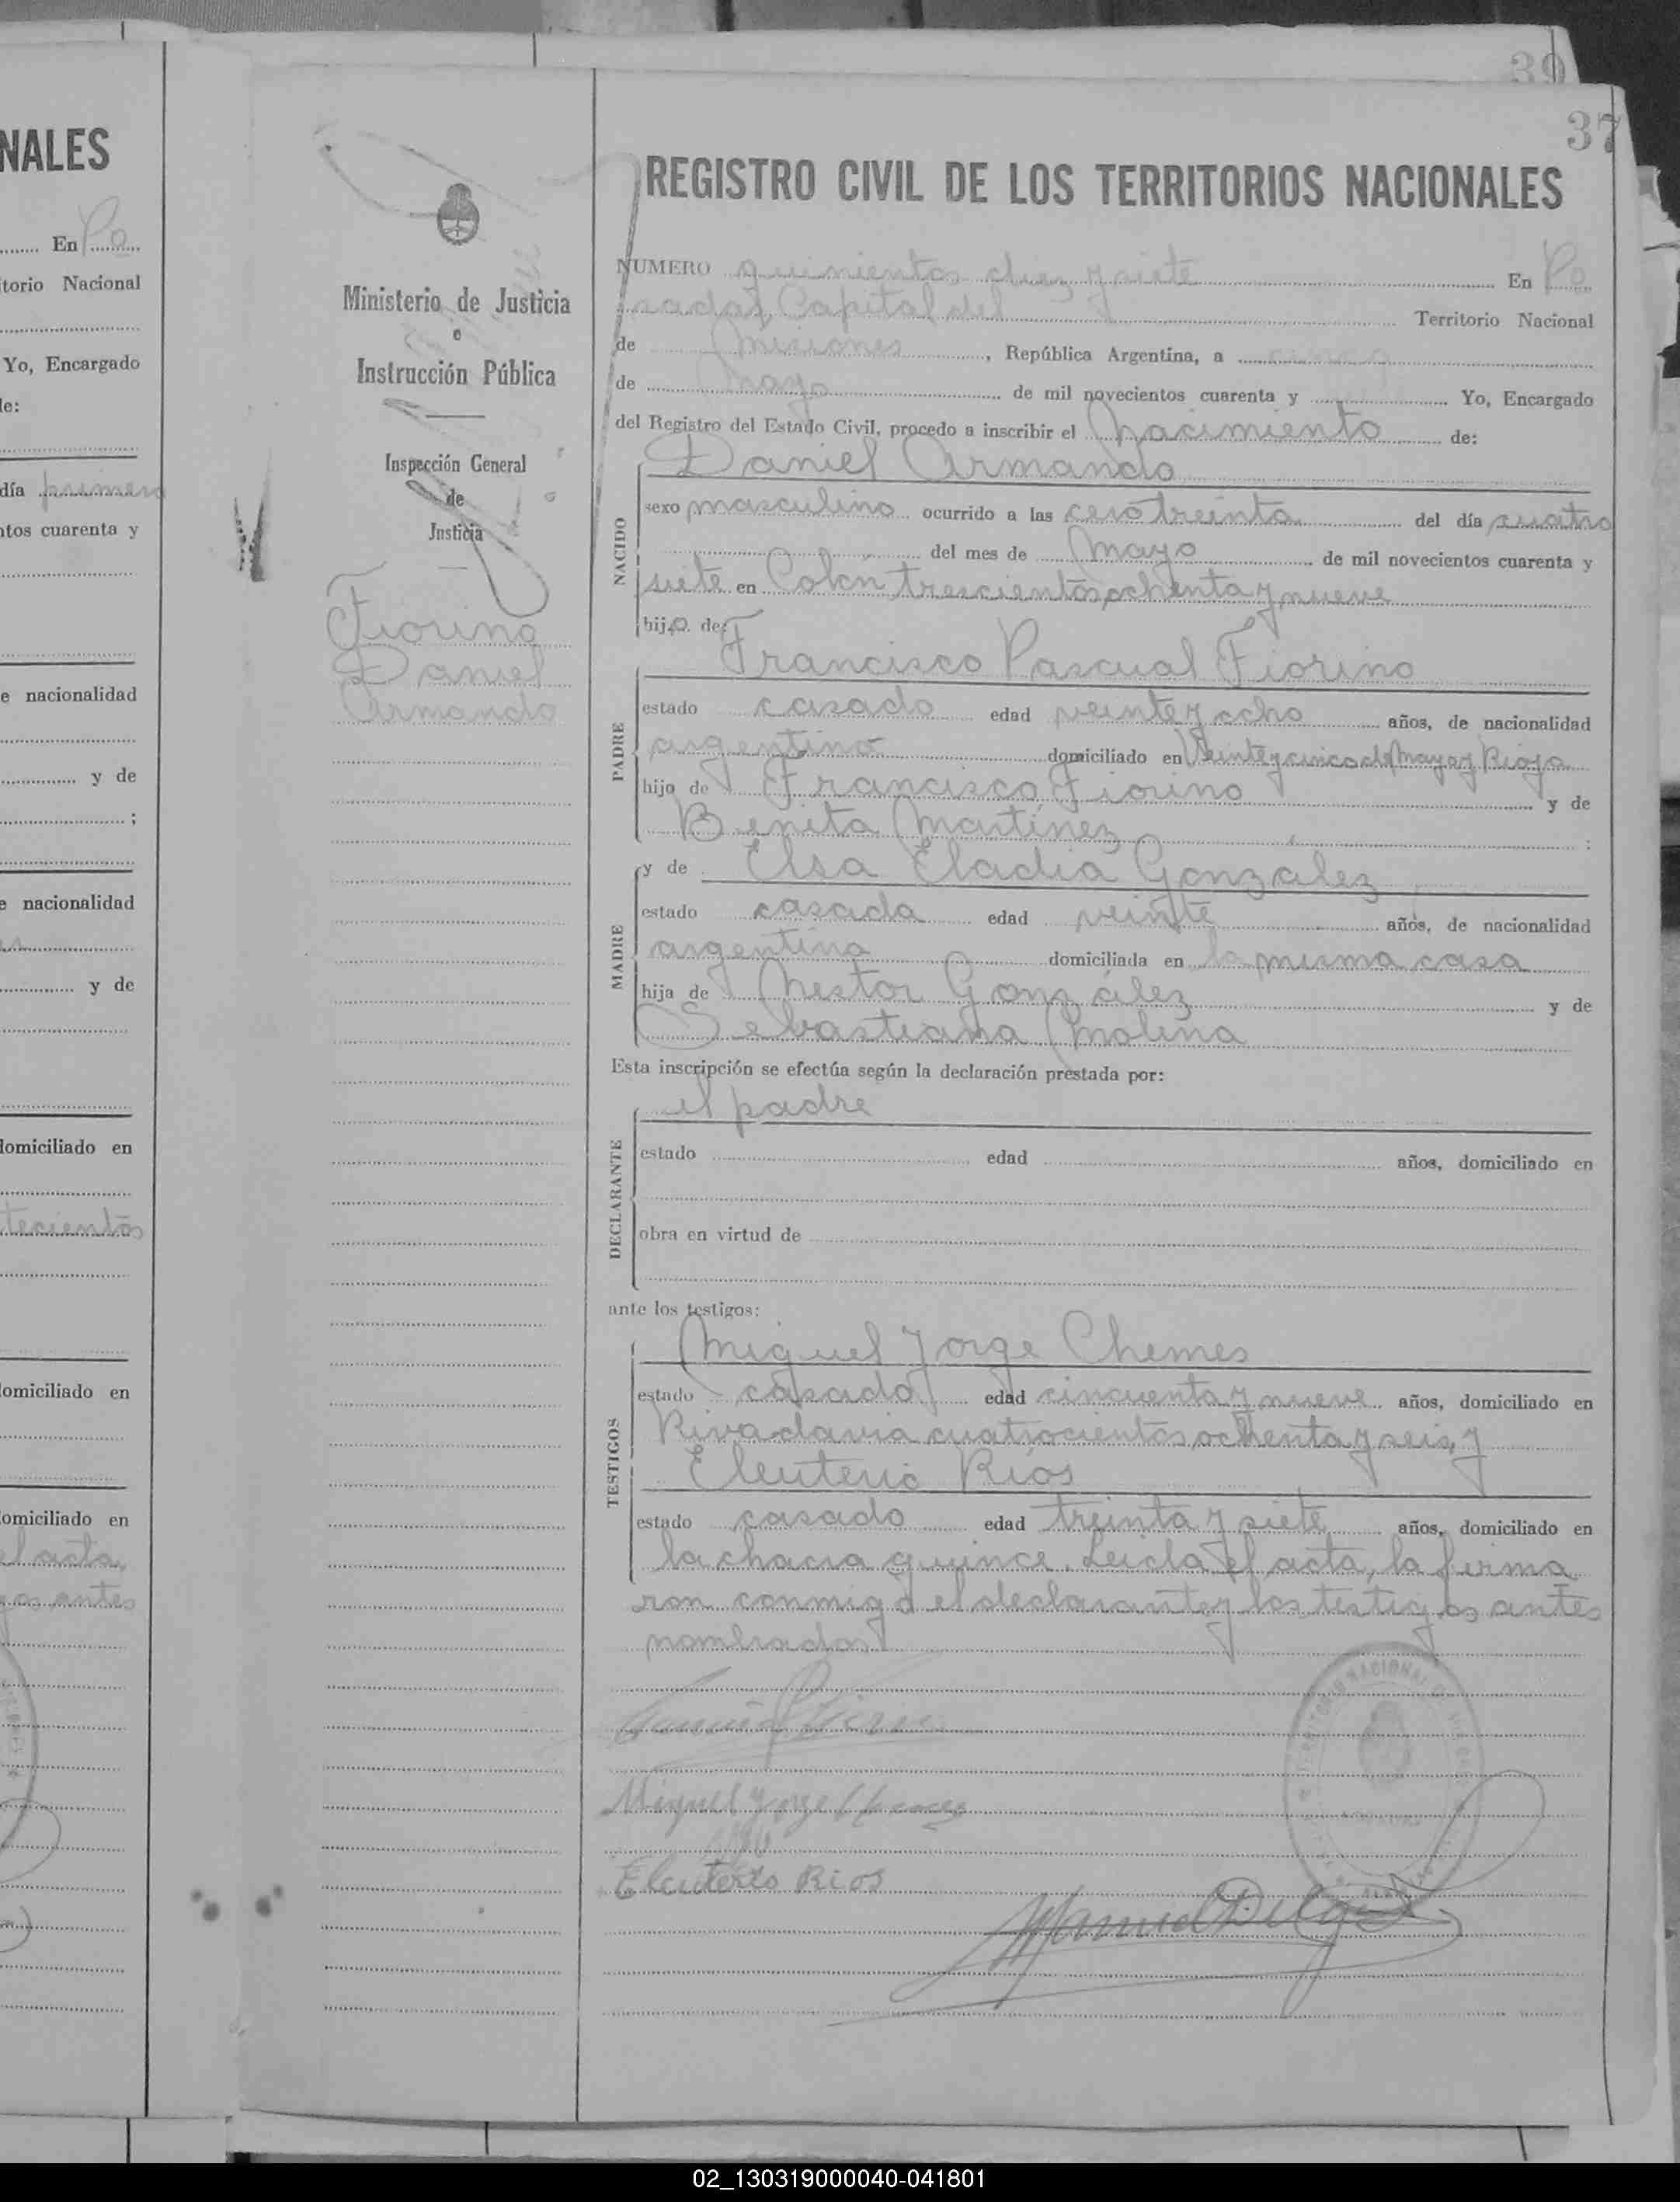 NALES
En Po
torio Nacional
Yo, Encargado
de:
día primero
ntos cuarenta y
e nacionalidad
y de
;
e nacionalidad
y de
domiciliado en
tecientos
domiciliado en
domiciliado en
el acta,
gos antes
39
37
Ministerio de Justicia
e
Instrucción Pública
Inspección General
de
Justicia
Fiorino
Daniel
Armando
REGISTRO CIVIL DE LOS TERRITORIOS NACIONALES
NUMERO quinientos diez y siete En Po
sadas, Capital del Territorio Nacional
de Misiones, República Argentina, a cinco
de Mayo de mil novecientos cuarenta y Yo, Encargado
del Registro del Estado Civil, procedo a inscribir el Nacimiento de:
Daniel Armando
NACIDO
sexo masculino ocurrido a las cero treinta del día cuatro
del mes de Mayo de mil novecientos cuarenta y
siete en Colón trescientos ochenta y nueve
hijo de:
Francisco Pascual Fiorino
PADRE
estado casado edad veinte y ocho años, de nacionalidad
argentino domiciliado en Veinte y cinco de Mayo y Rioja
hijo de Francisco Fiorino y de
Benita Martínez ;
y de Elsa Eladia González
MADRE
estado casada edad veinte años, de nacionalidad
argentina domiciliada en la misma casa
hija de Nestor González y de
Sebastiana Molina
Esta inscripción se efectúa según la declaración prestada por:
el padre
DECLARANTE
estado edad años, domiciliado en
obra en virtud de
ante los testigos:
Miguel Jorge Chemes
TESTIGOS
estado casado edad cincuenta y nueve años, domiciliado en
Rivadavia cuatrocientos ochenta y seis, y
Eleuterio Ríos
estado casado edad treinta y siete años, domiciliado en
la chacra quince. Leída el acta, la firma
ron conmigo el declarante y los testigos antes
nombrados
Miguel Jorge Chemes
Eleuterio Rios
02_130319000040-041801